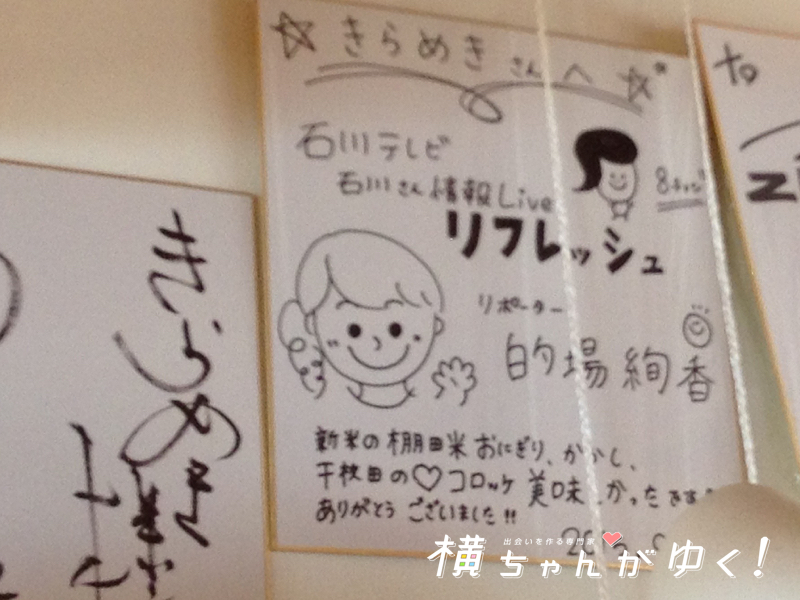 ☆きらめきさんへ☆
石川テレビ
石川さん情報Live
8チャン
リフレッシュ
リポーター
的場絢香
新米の棚田米おにぎり、かかし、
千枚田の♡コロッケ 美味 かったです
ありがとう ございました!!
きらめき
to
出会いを作る専門家
横ちゃんがゆく!